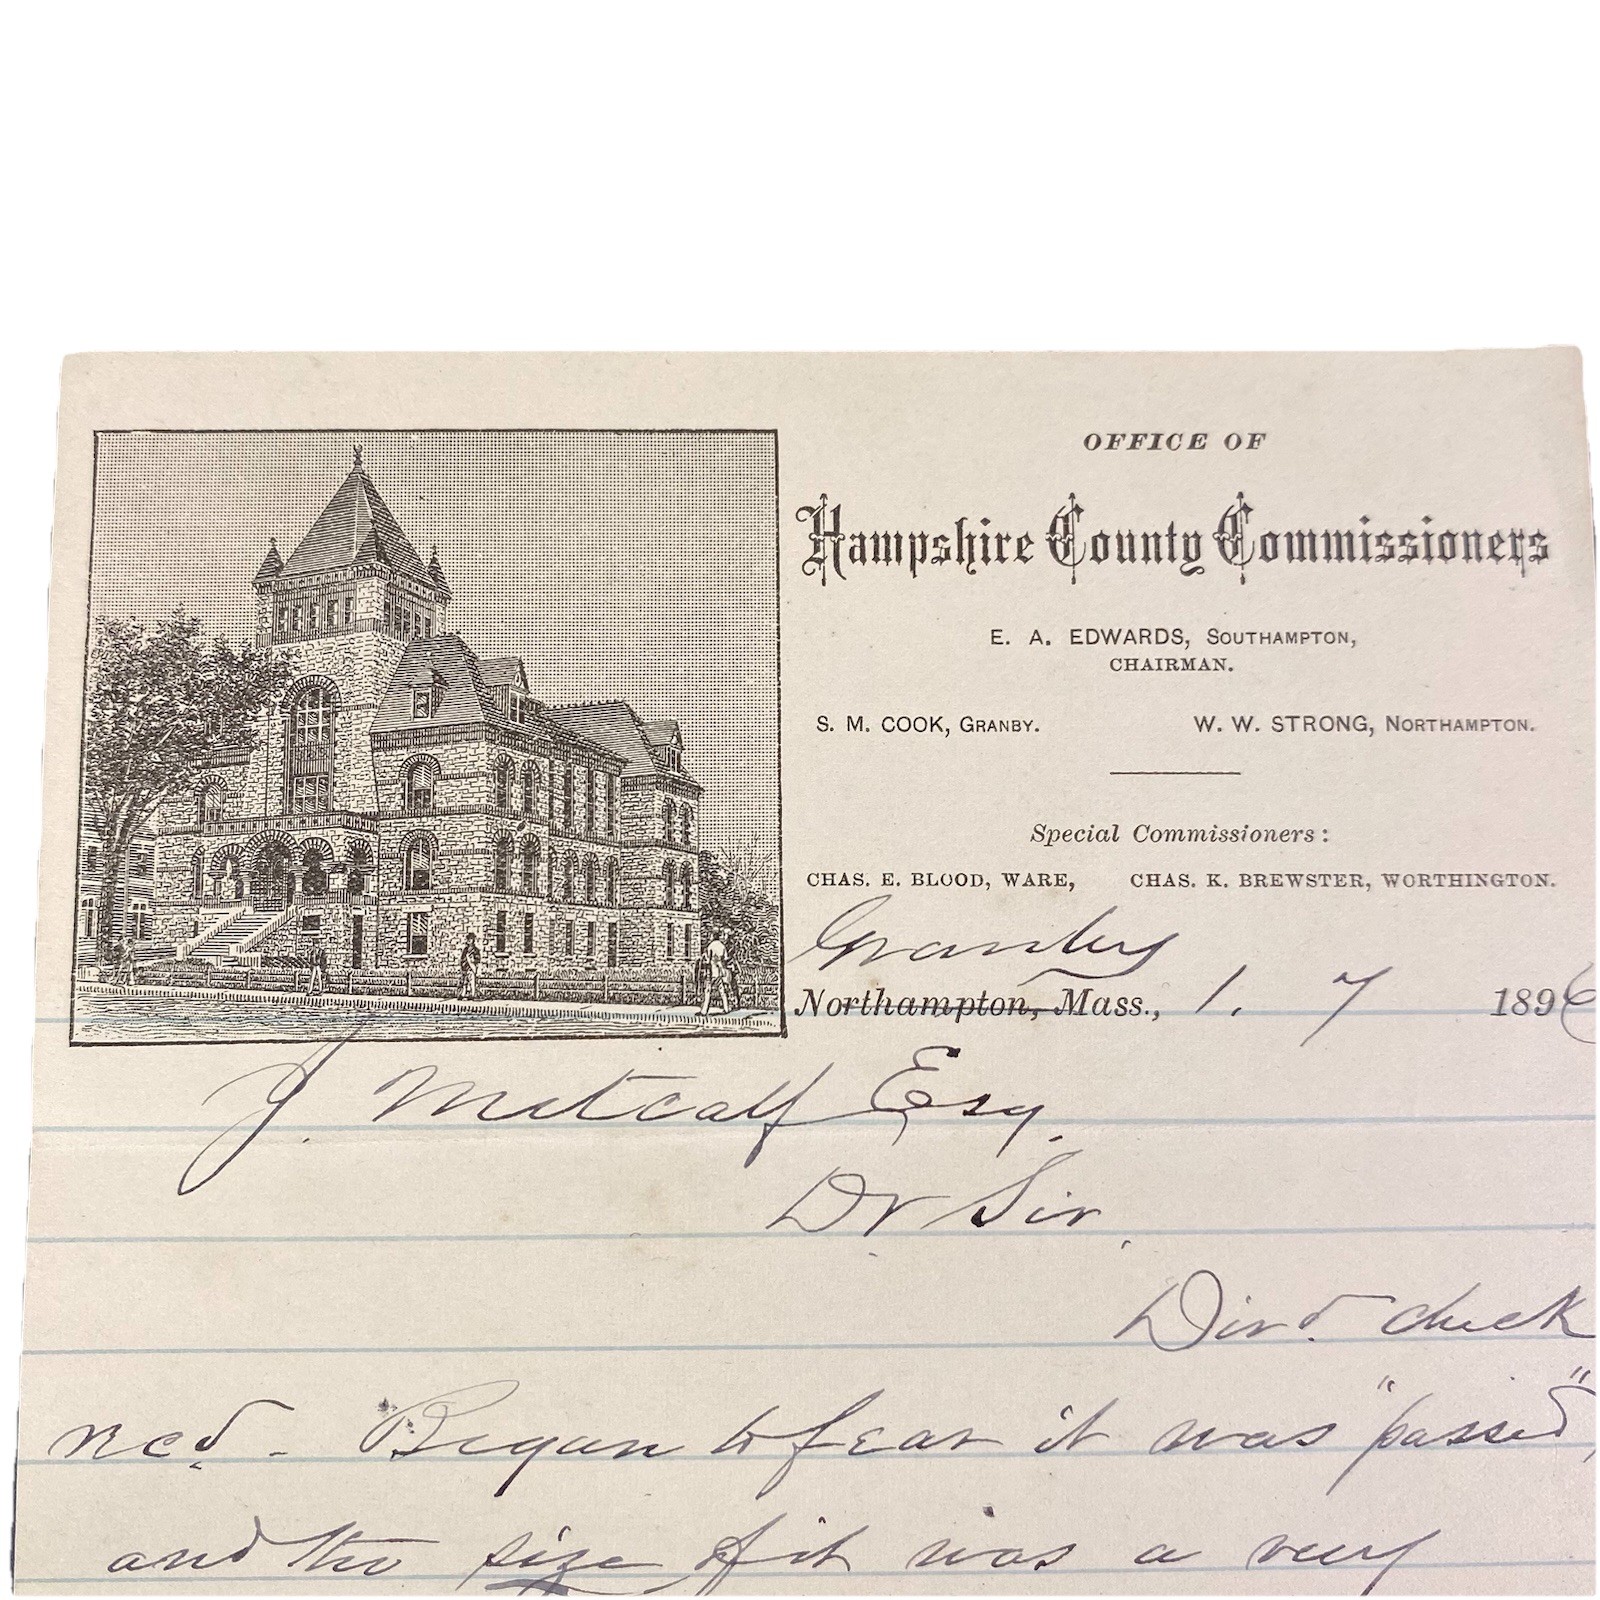 OFFICE OF
Hampshire County Commissioners
E. A. EDWARDS, SOUTHAMPTON,
CHAIRMAN.
S. M. COOK, GRANBY. W. W. STRONG, NORTHAMPTON.
Special Commissioners:
CHAS. E. BLOOD, WARE, CHAS. K. BREWSTER, WORTHINGTON.
Granby
Northampton, Mass., 1. 7 1896
J. Metcalf Esq.
Dr Sir,
Divd. check
recd. - Began to fear it was "passed",
and the size of it was a very